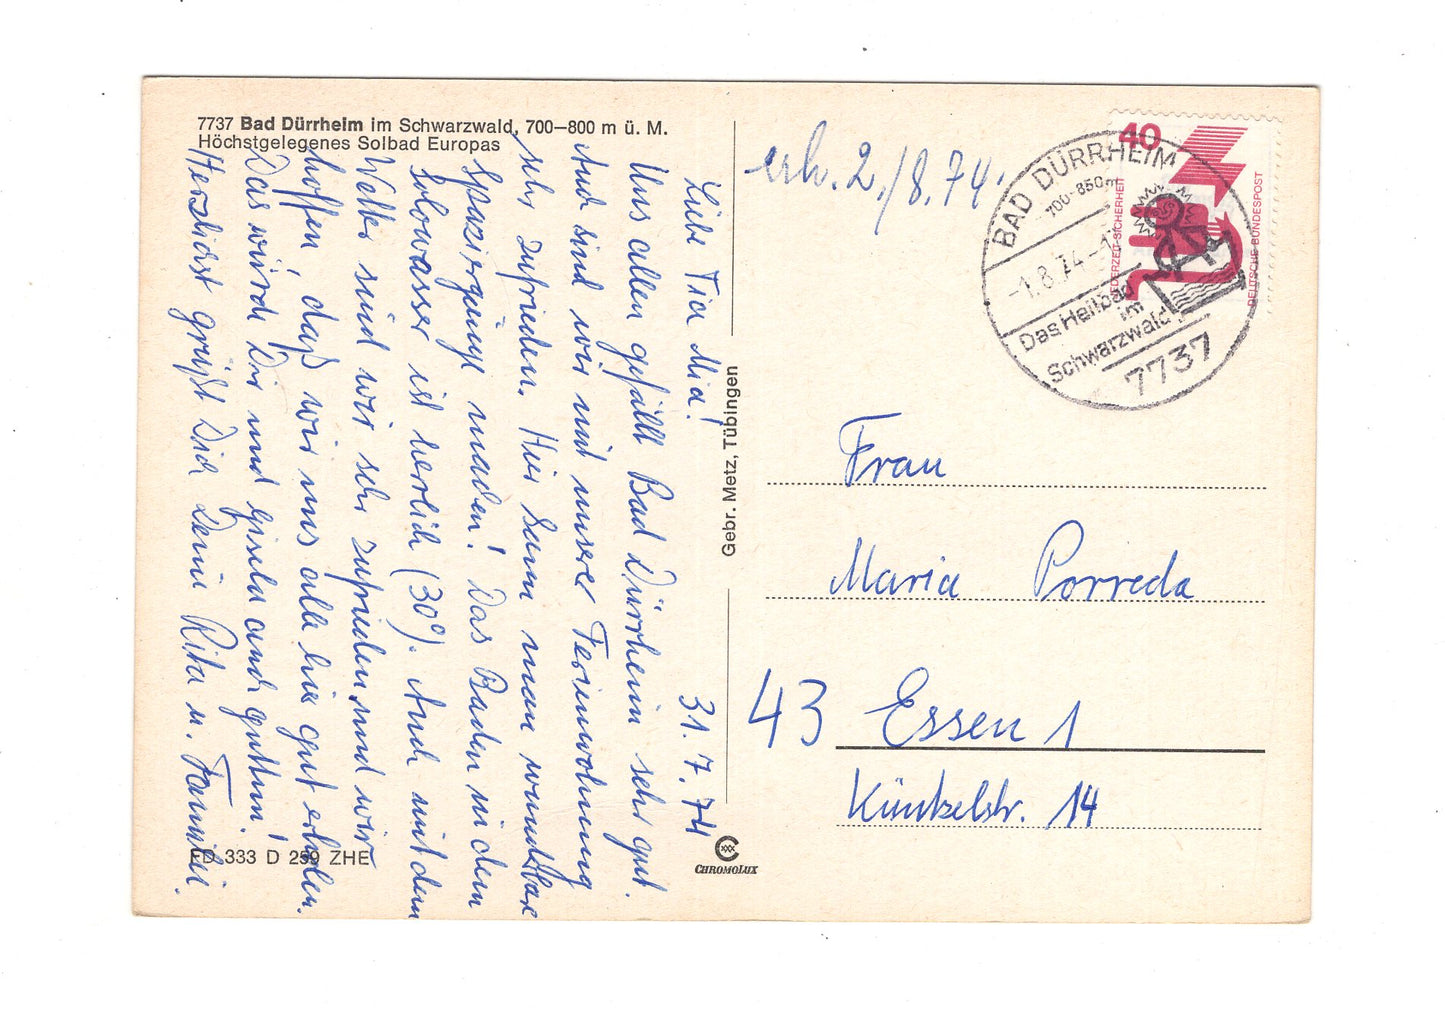 7737 Bad Dürrheim im Schwarzwald, 700–800 m ü. M.
Höchstgelegenes Solbad Europas
31.7.74
Liebe Tia Mia!
Uns allen gefällt Bad Dürrheim sehr gut.
Auch sind wir mit unserer Ferienwohnung
sehr zufrieden. Hier kann man wunderbare
Spaziergänge machen! Das Baden in dem
Solewasser ist herrlich (30°). Auch mit dem
Wetter sind wir sehr zufrieden und wir
hoffen, daß wir uns alle hier gut erholen.
Das würde Dir und Gisela auch guttun!
Herzlichst grüßt Dich Deine Rita u. Familie.
FD 333 D 259 ZHE
Gebr. Metz, Tübingen
CHROMOLUX
erh. 2./8.74.
40
JEDERZEIT SICHERHEIT
DEUTSCHE BUNDESPOST
BAD DÜRRHEIM
700-850m
-1.8.74-
Das Heilbad
im
Schwarzwald
7737
Frau
Maria Porreda
43 Essen 1
Küntzelstr. 14